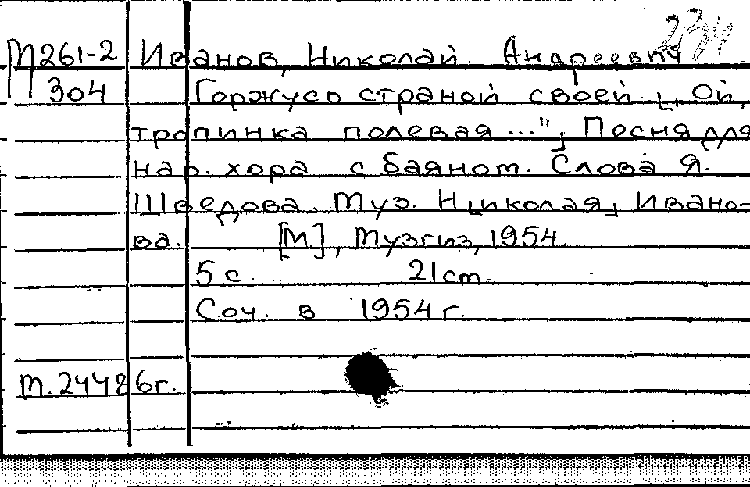 М261-2 Иванов, Николай Андреевич
304 Горжусь страной своей "Ой,
тропинка полевая...", Песня для
нар. хора с баяном. Слова Я.
Шведова. Муз. Николая Ивано-
ва. [М], Музгиз, 1954
5 с. 21 cm.
Соч. в 1954 г.
т. 24486г.